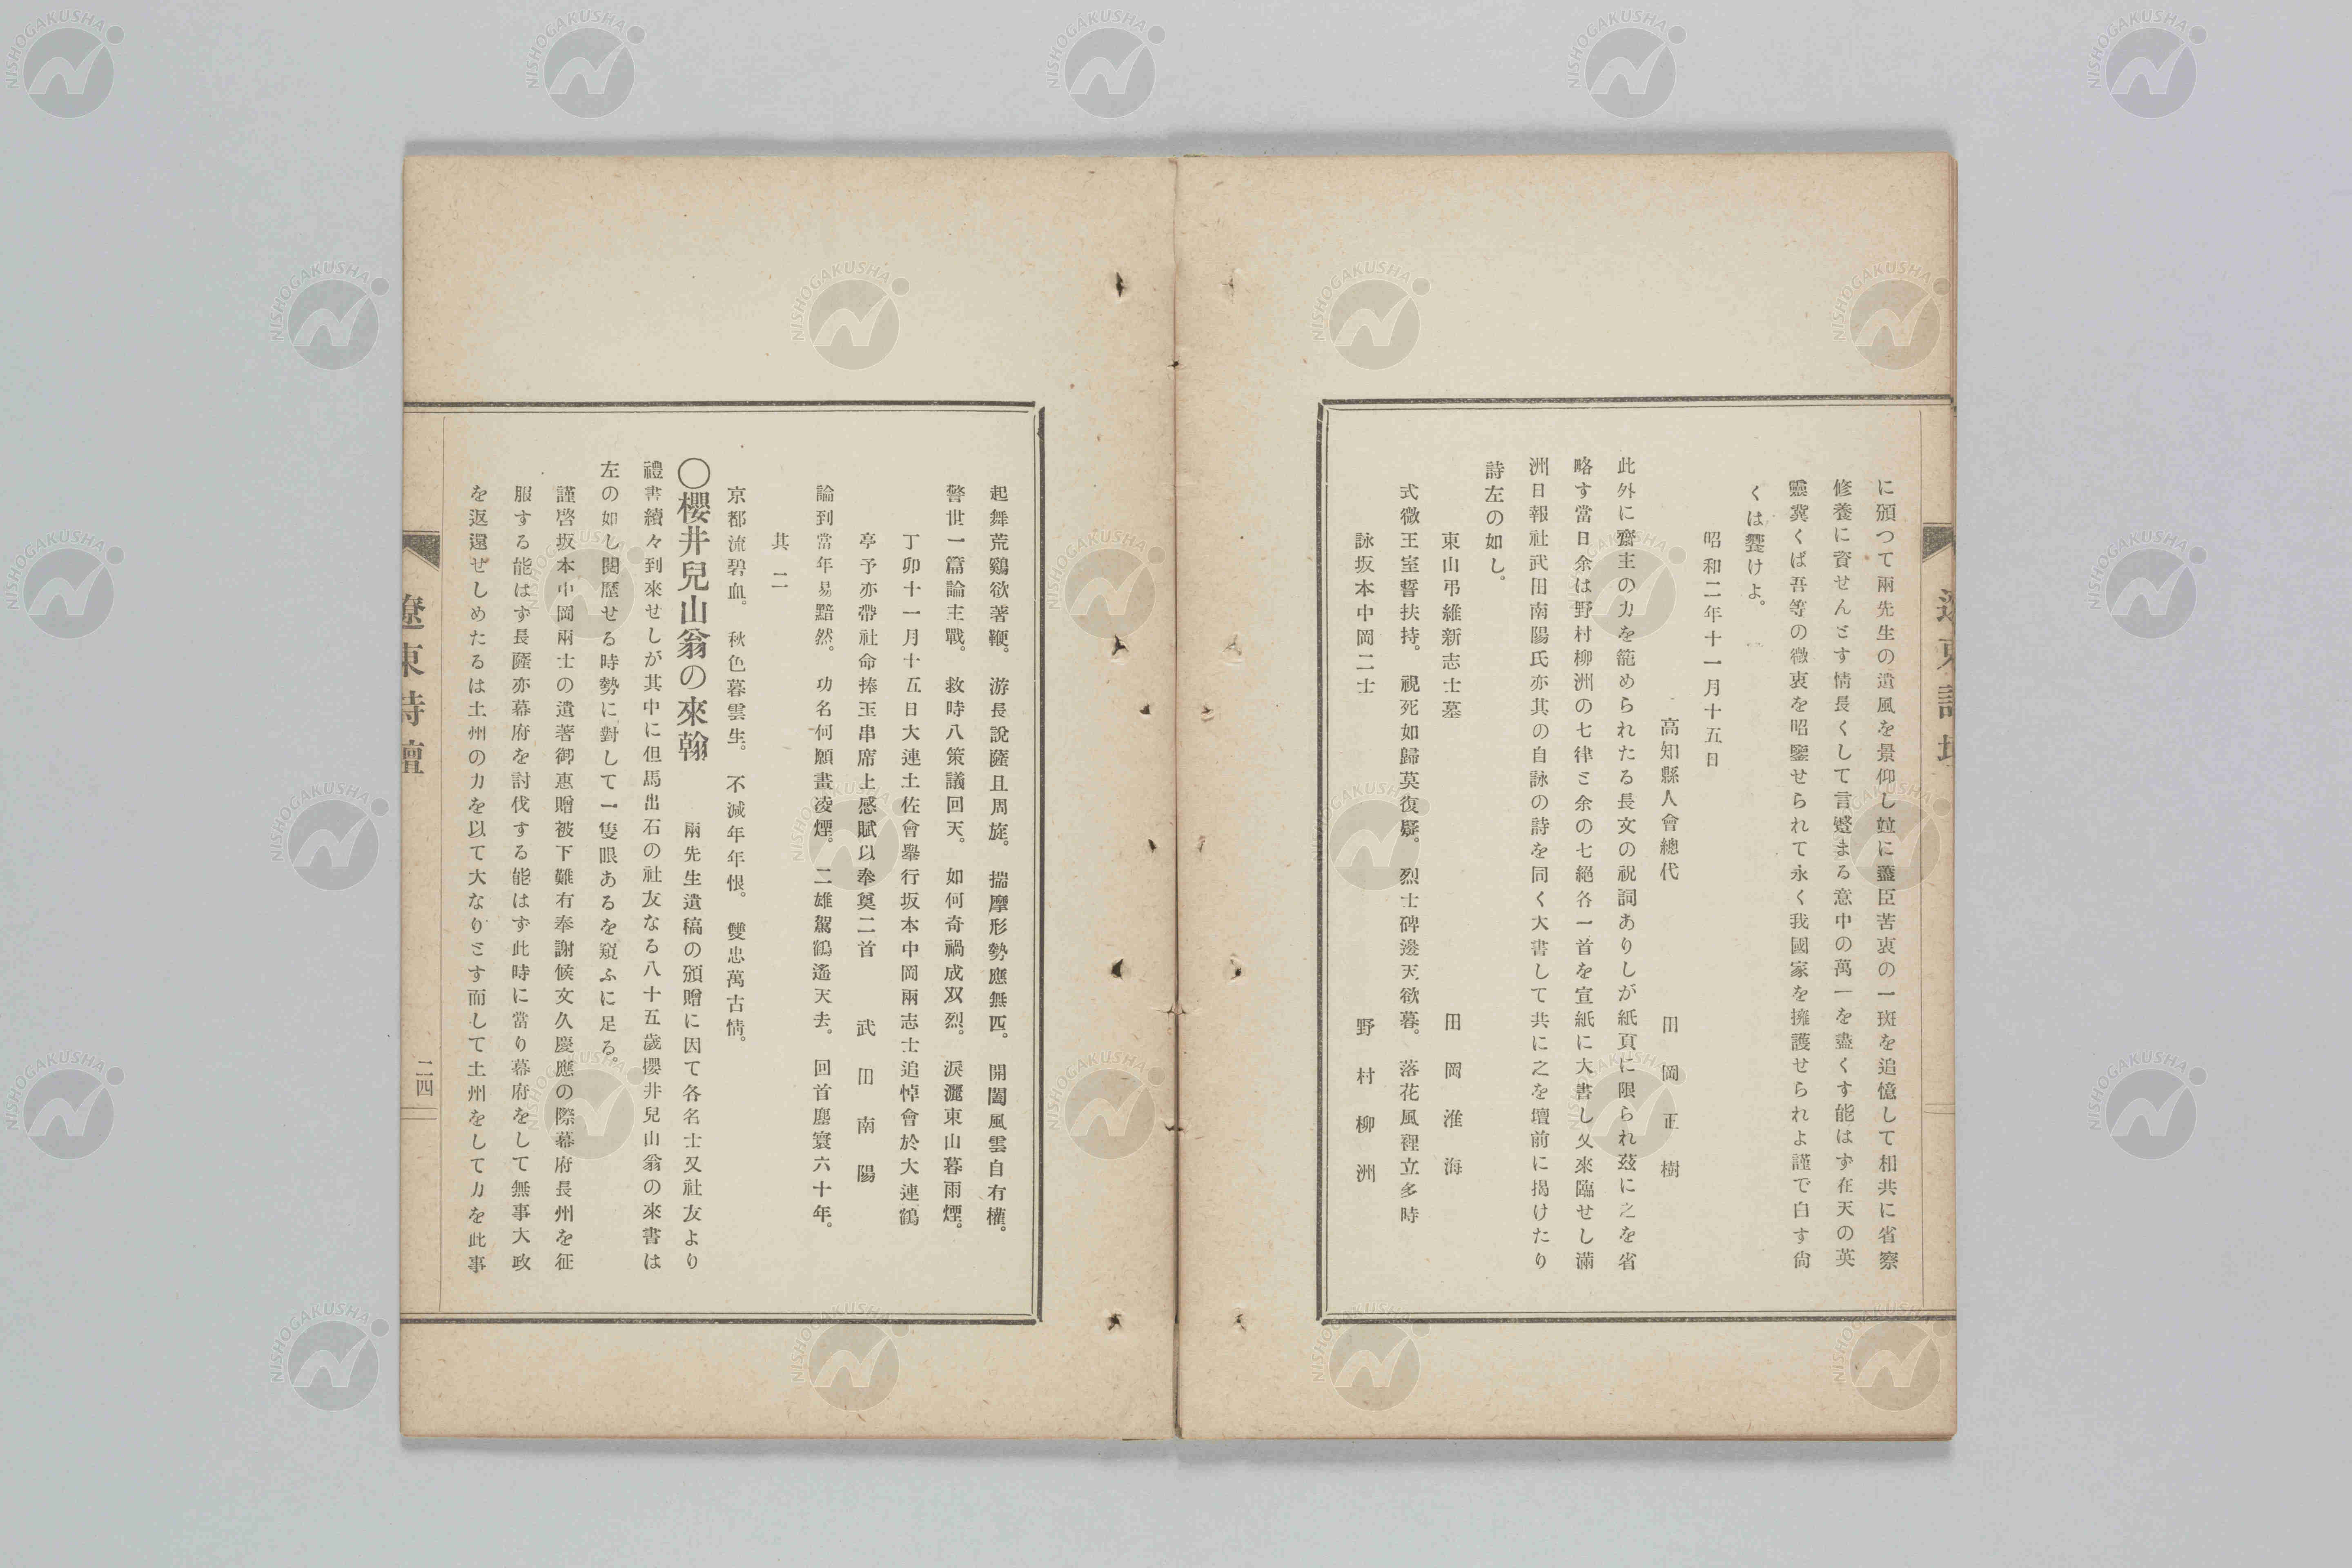 に頒つて兩先生の遺風を景仰し竝に藎臣苦衷の一斑を追憶して相共に省察
修養に資せんとす情長くして言蹙まる意中の萬一を盡くす能はず在天の英
靈冀くば吾等の微衷を昭鑒せられて永く我國家を擁護せられよ謹で白す尙
くは饗けよ。
昭和二年十一月十五日
高知縣人會總代　田岡正樹
此外に齋主の力を籠められたる長文の祝詞ありしが紙頁に限られ玆に之を省
略す當日余は野村柳洲の七律と余の七絕各一首を宣紙に大書し又來臨せし滿
洲日報社武田南陽氏亦其の自詠の詩を同く大書して共に之を壇前に揭けたり
詩左の如し。
東山弔維新志士墓　田岡淮海
式微王室誓扶持。視死如歸莫復疑。烈士碑邊天欲暮。落花風裡立多時
詠坂本中岡二士　野村柳洲
遼東詩壇
起舞荒鷄欲著鞭。游長說薩且周旋。揣摩形勢應無匹。開闔風雲自有權。
警世一篇論主戰。救時八策議回天。如何奇禍成双烈。淚灑東山暮雨煙。
丁卯十一月十五日大連土佐會擧行坂本中岡兩志士追悼會於大連鶴
亭予亦帶社命捧玉串席上感賦以奉奠二首　武田南陽
論到當年易黯然。功名何願畫凌煙。二雄駕鶴遙天去。回首塵寰六十年。
其二
京都流碧血。秋色暮雲生。不滅年年恨。雙忠萬古情。
〇櫻井兒山翁の來翰　兩先生遺稿の頒贈に因て各名士又社友より
禮書續々到來せしが其中に但馬出石の社友なる八十五歲櫻井兒山翁の來書は
左の如し閱歷せる時勢に對して一隻眼あるを窺ふに足る。
謹啓坂本中岡兩士の遺著御惠贈被下難有奉謝候文久慶應の際幕府長州を征
服する能はず長薩亦幕府を討伐する能はず此時に當り幕府をして無事大政
を返還せしめたるは土州の力を以て大なりとす而して土州をして力を此事
遼東詩壇
二四
NISHOGAKUSHA